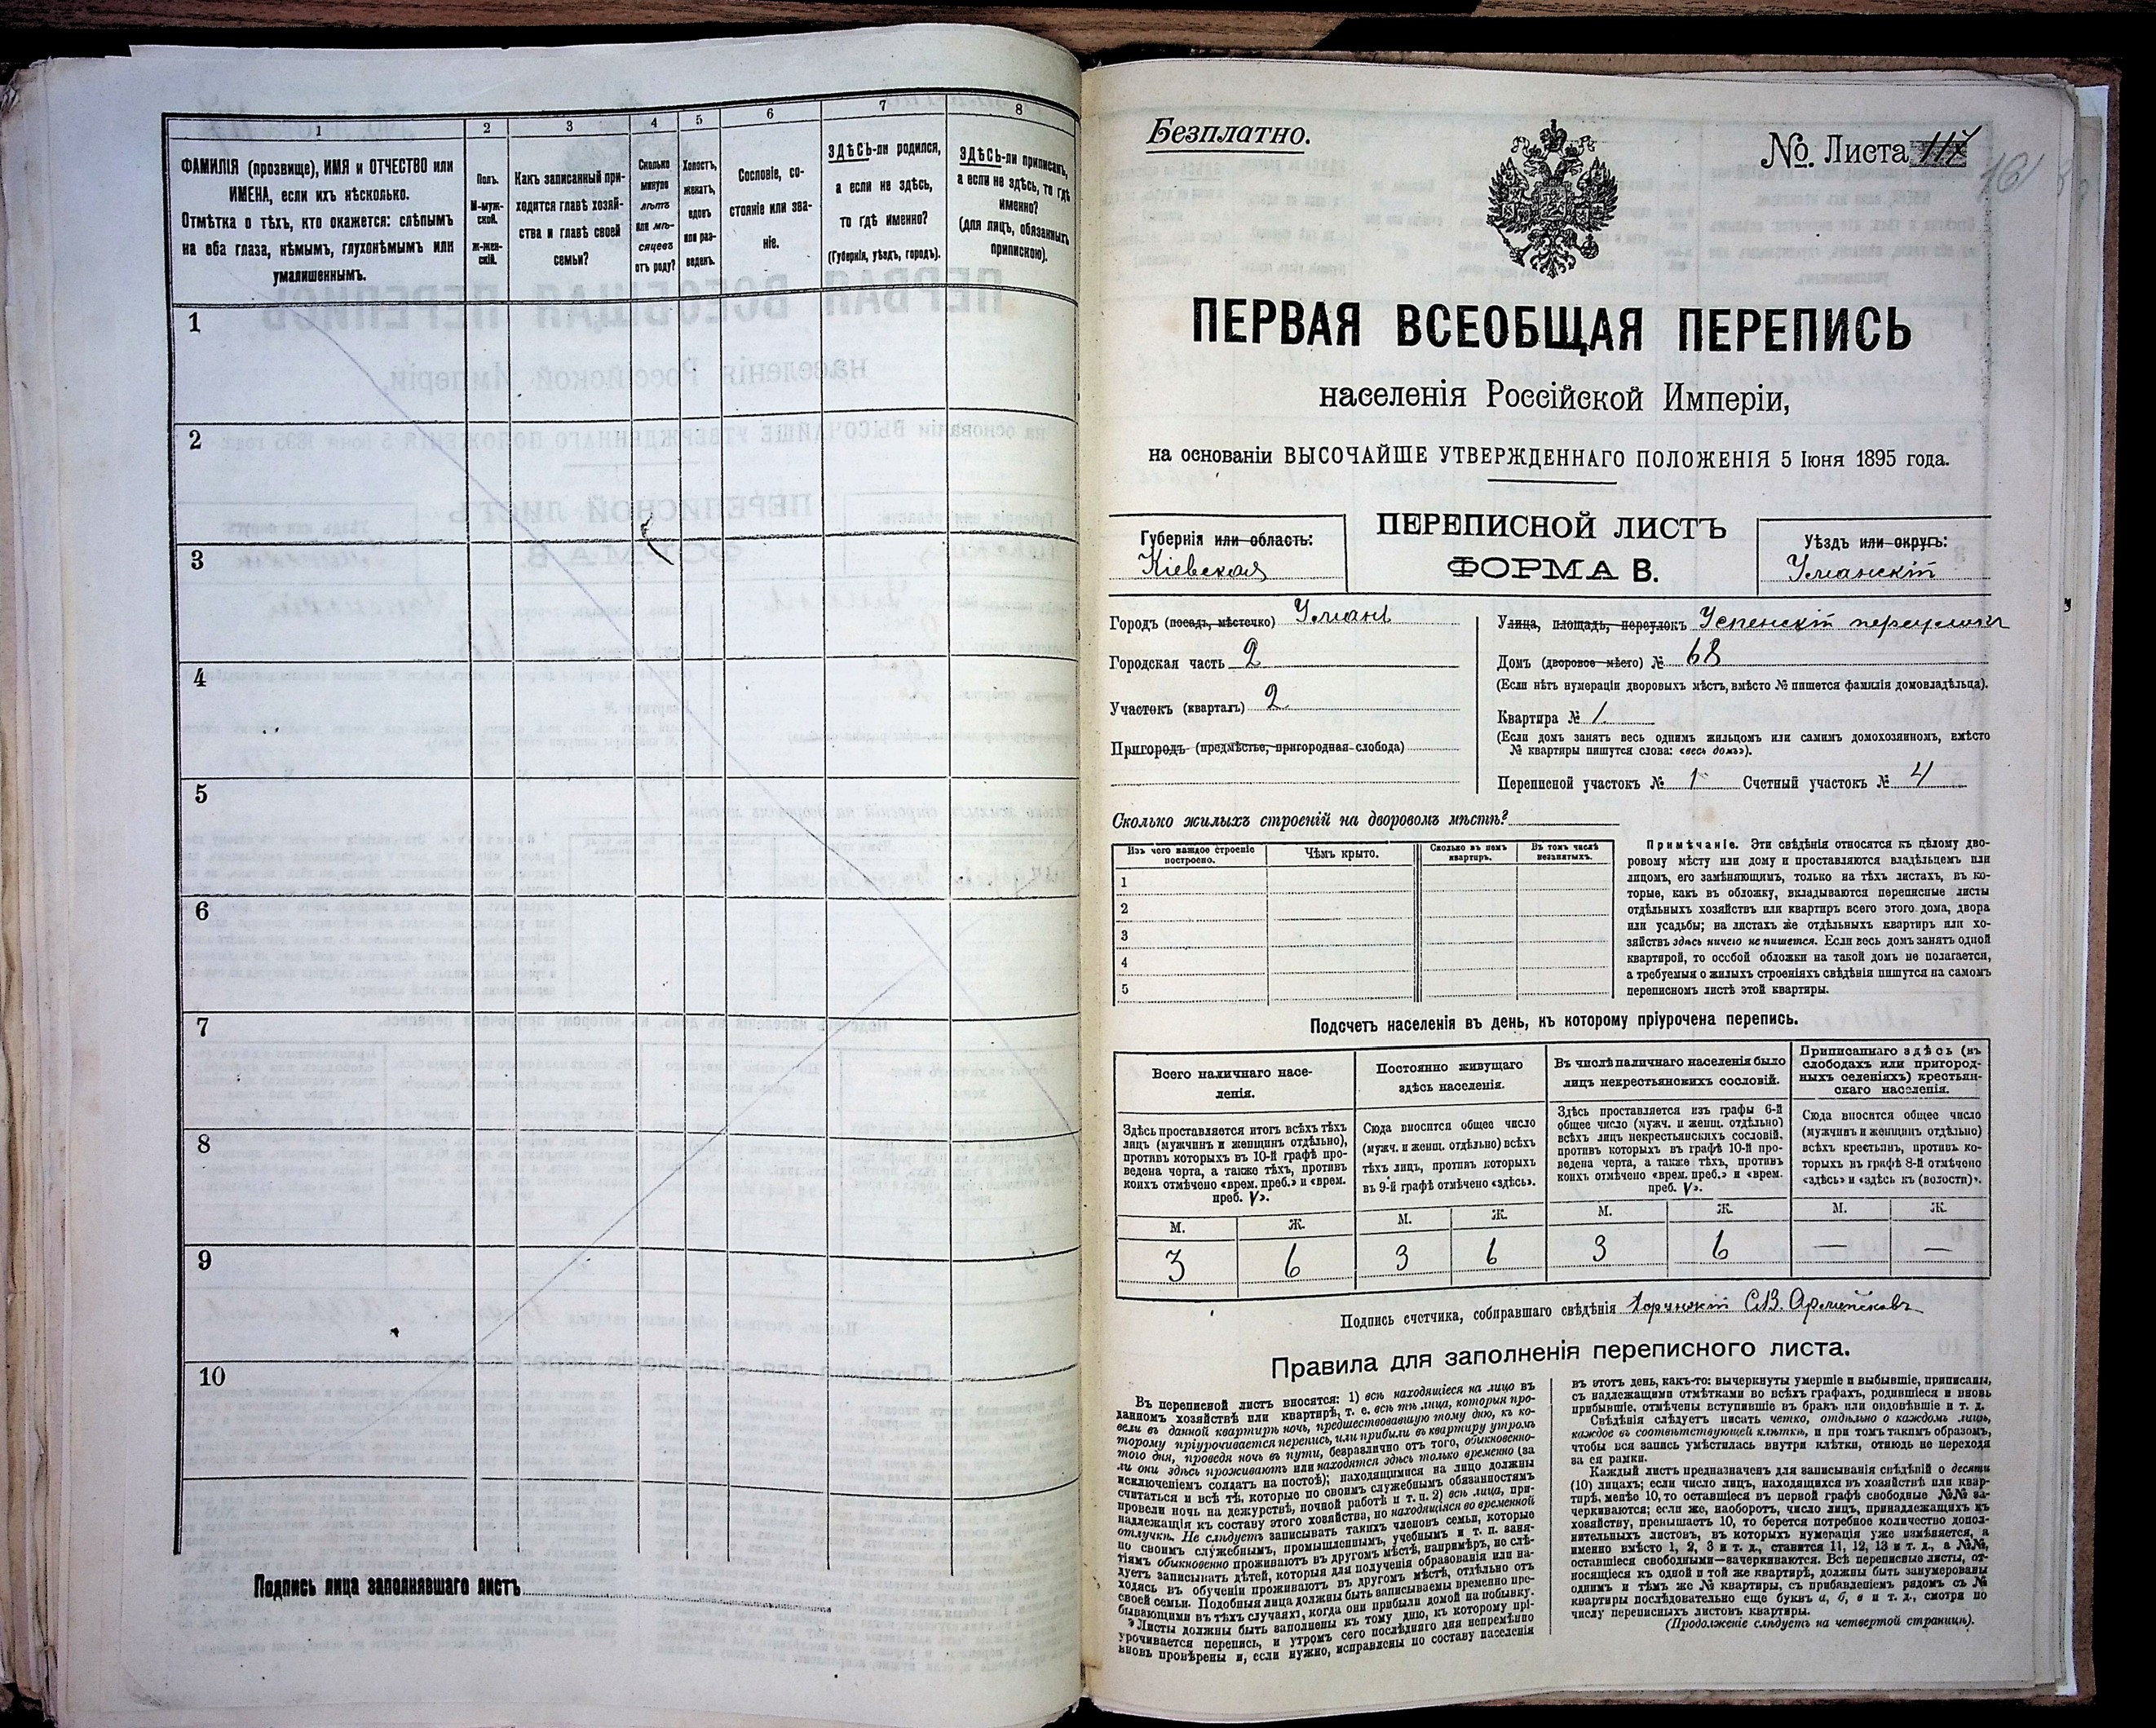 1
2
3
4
5
6
7
8
ФАМИЛІЯ (прозвище), ИМЯ и ОТЧЕСТВО или
ИМЕНА, если ихъ нѣсколько.
Отмѣтка о тѣхъ, кто окажется: слѣпымъ
на оба глаза, нѣмымъ, глухонѣмымъ или
умалишеннымъ.
Полъ.
М-муж-
ской.
ж-жен-
скій.
Какъ записанный при-
ходится главѣ хозяй-
ства и главѣ своей
семьи?
Сколько
минуло
лѣтъ
или мѣ-
сяцевъ
отъ роду?
Холостъ,
женатъ,
вдовъ
или раз-
веденъ.
Сословіе, со-
стояніе или зва-
ніе.
ЗДѢСЬ-ли родился,
а если не здѣсь,
то гдѣ именно?
(Губернія, уѣздъ, городъ).
ЗДѢСЬ-ли приписанъ,
а если не здѣсь, то гдѣ
именно?
(для лицъ, обязанныхъ
припискою).
1
2
3
4
5
6
7
8
9
10
Подпись лица заполнявшаго листъ
Безплатно.
№ Листа 117
ПЕРВАЯ ВСЕОБЩАЯ ПЕРЕПИСЬ
населенія Россійской Имперіи,
на основаніи ВЫСОЧАЙШЕ УТВЕРЖДЕННАГО ПОЛОЖЕНІЯ 5 Іюня 1895 года.
Губернія или область:
Кіевская
ПЕРЕПИСНОЙ ЛИСТЪ
ФОРМА В.
Уѣздъ или округъ:
Уманскій
Городъ (посадъ, мѣстечко) Умань
Городская часть 2
Участокъ (кварталъ) 2
Пригородъ (предмѣстье, пригородная слобода)
Улица, площадь, переулокъ Успенскій переулокъ
Домъ (дворовое мѣсто) № 68
(Если нѣтъ нумераціи дворовыхъ мѣстъ, вмѣсто № пишется фамилія домовладѣльца).
Квартира № 1
(Если домъ занятъ весь однимъ жильцомъ или самимъ домохозяиномъ, вмѣсто
№ квартиры пишутся слова: «весь домъ»).
Переписной участокъ № 1 Счетный участокъ № 4
Сколько жилыхъ строеній на дворовомъ мѣстѣ?
Изъ чего каждое строеніе
построено.
Чѣмъ крыто.
Сколько въ немъ
квартиръ.
Въ томъ числѣ
незанятыхъ.
1
2
3
4
5
Примѣчаніе. Эти свѣдѣнія относятся къ цѣлому дво-
ровому мѣсту или дому и проставляются владѣльцемъ или
лицомъ, его замѣняющимъ, только на тѣхъ листахъ, въ ко-
торые, какъ въ обложку, вкладываются переписные листы
отдѣльныхъ хозяйствъ или квартиръ всего этого дома, двора
или усадьбы; на листахъ же отдѣльныхъ квартиръ или хо-
зяйствъ здѣсь ничего не пишется. Если весь домъ занятъ одной
квартирой, то особой обложки на такой домъ не полагается,
а требуемыя о жилыхъ строеніяхъ свѣдѣнія пишутся на самомъ
переписномъ листѣ этой квартиры.
Подсчетъ населенія въ день, къ которому пріурочена перепись.
Всего наличнаго насе-
ленія.
Здѣсь проставляется итогъ всѣхъ тѣхъ
лицъ (мужчинъ и женщинъ отдѣльно),
противъ которыхъ въ 10-й графѣ про-
ведена черта, а также тѣхъ, противъ
коихъ отмѣчено «врем. преб.» и «врем.
преб. V».
Постоянно живущаго
здѣсь населенія.
Сюда вносится общее число
(мужч. и женщ. отдѣльно) всѣхъ
тѣхъ лицъ, противъ которыхъ
въ 9-й графѣ отмѣчено «здѣсь».
Въ числѣ наличнаго населенія было
лицъ некрестьянскихъ сословій.
Здѣсь проставляется изъ графы 6-й
общее число (мужч. и женщ. отдѣльно)
всѣхъ лицъ некрестьянскихъ сословій,
противъ которыхъ въ графѣ 10-й про-
ведена черта, а также тѣхъ, противъ
коихъ отмѣчено «врем. преб.» и «врем.
преб. V».
Приписаннаго здѣсь (въ
слободахъ или пригород-
ныхъ селеніяхъ) крестьян-
скаго населенія.
Сюда вносится общее число
(мужчинъ и женщинъ отдѣльно)
всѣхъ крестьянъ, противъ ко-
торыхъ въ графѣ 8-й отмѣчено
«здѣсь» и «здѣсь къ (волости)».
М. Ж. М. Ж. М. Ж. М. Ж.
3 6 3 6 3 6 — —
Подпись счетчика, собиравшаго свѣдѣнія
Правила для заполненія переписного листа.
Въ переписной листъ вносятся: 1) всѣ находящіеся на лицо въ
данномъ хозяйствѣ или квартирѣ, т. е. всѣ тѣ лица, которыя про-
вели въ данной квартирѣ ночь, предшествовавшую тому дню, къ ко-
торому пріурочивается перепись, или прибыли въ квартиру утромъ
того дня, проведя ночь въ пути, безразлично отъ того, обыкновенно-
ли они здѣсь проживаютъ или находятся здѣсь только временно (за
исключеніемъ солдатъ на постоѣ); находящимися на лицо должны
считаться и всѣ тѣ, которые по своимъ служебнымъ обязанностямъ
провели ночь на дежурствѣ, ночной работѣ и т. п. 2) всѣ лица, при-
надлежащія къ составу этого хозяйства, но находящіяся во временной
отлучкѣ. Не слѣдуетъ записывать такихъ членовъ семьи, которые
по своимъ служебнымъ, промышленнымъ, учебнымъ и т. п. заня-
тіямъ обыкновенно проживаютъ въ другомъ мѣстѣ, напримѣръ, не слѣ-
дуетъ записывать дѣтей, которыя для полученія образованія или на-
ходясь въ обученіи проживаютъ въ другомъ мѣстѣ, отдѣльно отъ
своей семьи. Подобныя лица должны быть записываемы временно пре-
бывающими въ тѣхъ случаяхъ, когда они прибыли домой на побывку.
Листы должны быть заполнены къ тому дню, къ которому прі-
урочивается перепись, и утромъ сего послѣдняго дня непремѣнно
вновь провѣрены и, если нужно, исправлены по составу населенія
въ этотъ день, какъ-то: вычеркнуты умершіе и выбывшіе, приписаны,
съ надлежащими отмѣтками во всѣхъ графахъ, родившіеся и вновь
прибывшіе, отмѣчены вступившіе въ бракъ или овдовѣвшіе и т. д.
Свѣдѣнія слѣдуетъ писать четко, отдѣльно о каждомъ лицѣ,
каждое въ соотвѣтствующей клѣткѣ, и при томъ такимъ образомъ,
чтобы вся запись умѣстилась внутри клѣтки, отнюдь не переходя
за ея рамки.
Каждый листъ предназначенъ для записыванія свѣдѣній о десяти
(10) лицахъ; если число лицъ, находящихся въ хозяйствѣ или квар-
тирѣ, менѣе 10, то оставшіеся въ первой графѣ свободные №№ за-
черкиваются; если же, наоборотъ, число лицъ, принадлежащихъ къ
хозяйству, превышаетъ 10, то берется потребное количество допол-
нительныхъ листовъ, въ которыхъ нумерація уже измѣняется, а
именно вмѣсто 1, 2, 3 и т. д., ставится 11, 12, 13 и т. д., а №№,
оставшіеся свободными—вачеркиваются. Всѣ переписные листы, от-
носящіеся къ одной и той же квартирѣ, должны быть занумерованы
однимъ и тѣмъ же № квартиры, съ прибавленіемъ рядомъ съ №
квартиры послѣдовательно еще буквъ а, б, в и т. д., смотря по
числу переписныхъ листовъ квартиры.
(Продолженіе слѣдуетъ на четвертой страницѣ).